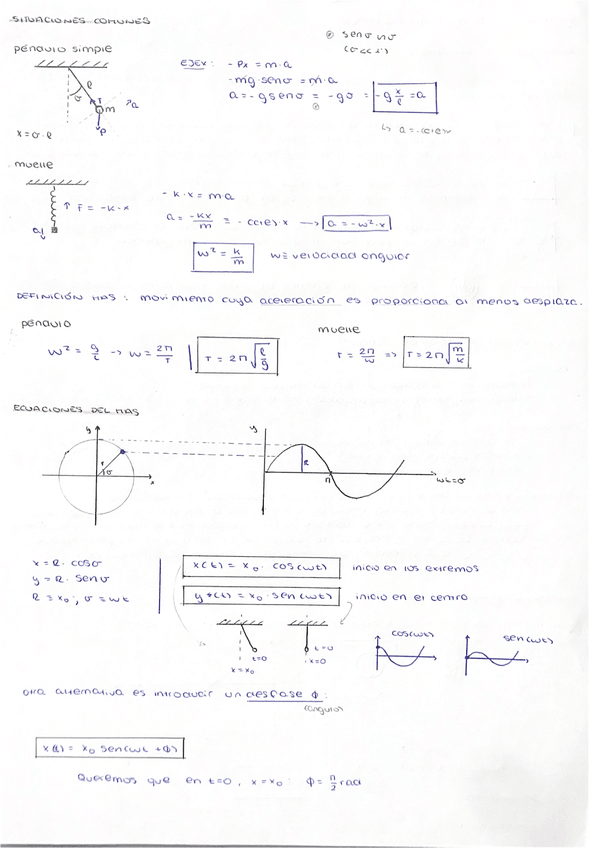 SITUACIONES COMUNES
péndulo simple
⊛ senσ ≈ σ
(σ<<1)
EJEX: - Px = m·a
-mg·senσ = m·a
a = -g senσ = -gσ = -g x/ℓ = a
⊛
ℓ
σ
T
m
a
P
x = σ·ℓ
↳ a = -(cte)x
muelle
↑ F = -k·x
- k·x = ma
a = -kx/m = - (cte)·x → a = -w²·x
w² = k/m w ≡ velocidad angular
DEFINICIÓN MAS: movimiento cuya aceleración es proporcional al menos desplaza.
péndulo
muelle
w² = g/ℓ -> w = 2π/T | T = 2π√ℓ/g
T = 2π/w => T = 2π√m/k
ECUACIONES DEL MAS
y
r
σ
x
y
R
π
wt=σ
x = R· cosσ
y = R· senσ
R = x₀; σ = wt
x(t) = x₀· cos(wt) inicio en los extremos
y(t) = x₀·sen(wt) inicio en el centro
t=0
x = x₀
t=0
x=0
cos(wt)
sen(wt)
otra alternativa es introducir un desfase ϕ:
(ángulo)
x(t) = x₀ sen(wt +ϕ)
Queremos que en t=0, x=x₀: ϕ = π/2 rad